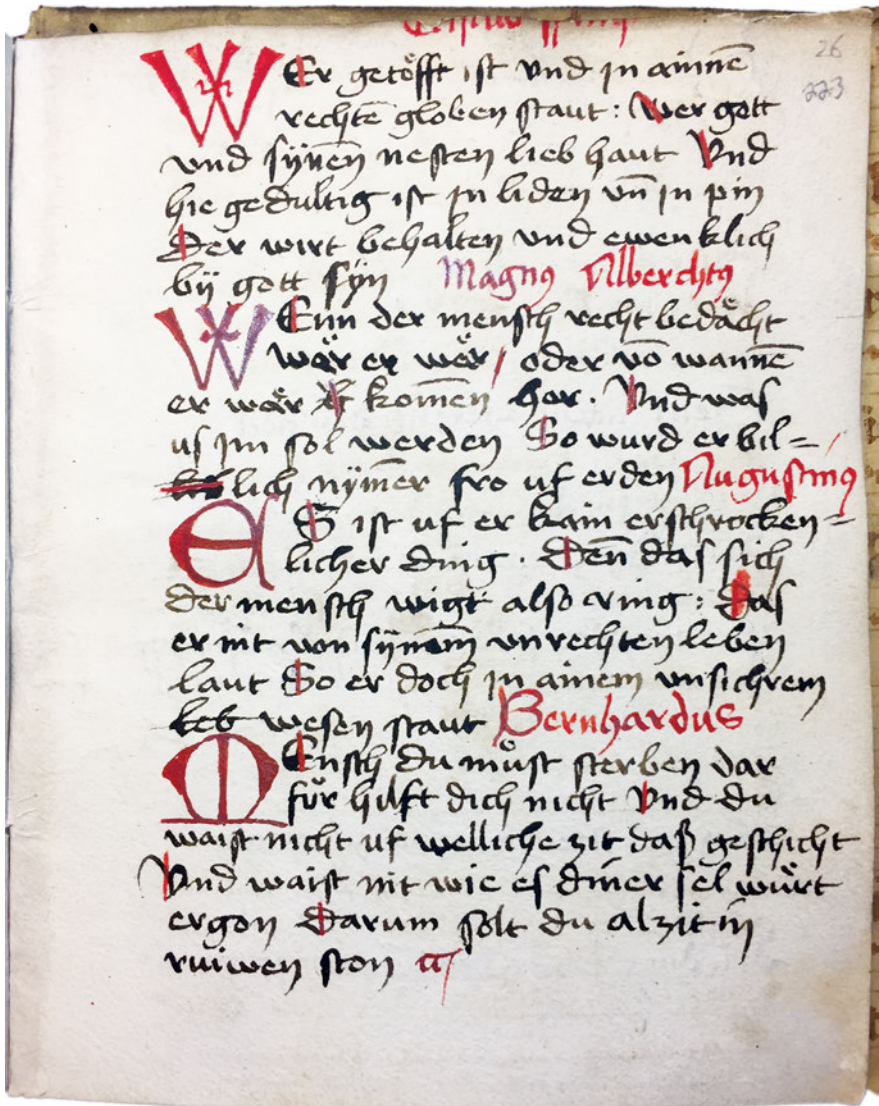 26
223
WEr getoͤfft ist vnd jn ainnē
rechtē globen staut: Wer gott
vnd sÿnēn nesten lieb haut Vnd
hie gedultig ist jn liden vn̄ jn pin
Der wirt behalten vnd ewenklich
bÿ gott sÿn Magnꝰ Alberchtꝰ
WEnn der mensch recht bedaͤcht
waͤr er weͤr / oder vō wannē
er waͤr kom̄en her. Vnd was
us jm sol werden So wurd er bil=
lich nÿm̄er fro uf erden Augustinꝰ
ES ist uf er kain erschrocken=
licher ding. Den̄ das sich
der mensch wigt also ring: Das
er nit von sÿnem vnrechten leben
laut So er doch jn ainem vnsichrem
leb wesen staut Bernhardus
MEnsch du muͦst sterben dar
fuͤr hilft dich nicht Vnd du
waist nicht uf welliche zit daß geschicht
Vnd waist nit wie es diner sel wuͤrt
ergon Darum solt du alzit in
ruiwen ston